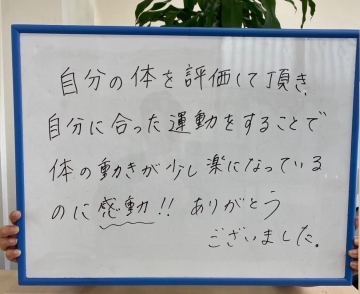 自分の体を評価して頂き、
自分に合った運動をすることで
体の動きが少し楽になっている
のに感動!! ありがとう
ございました.